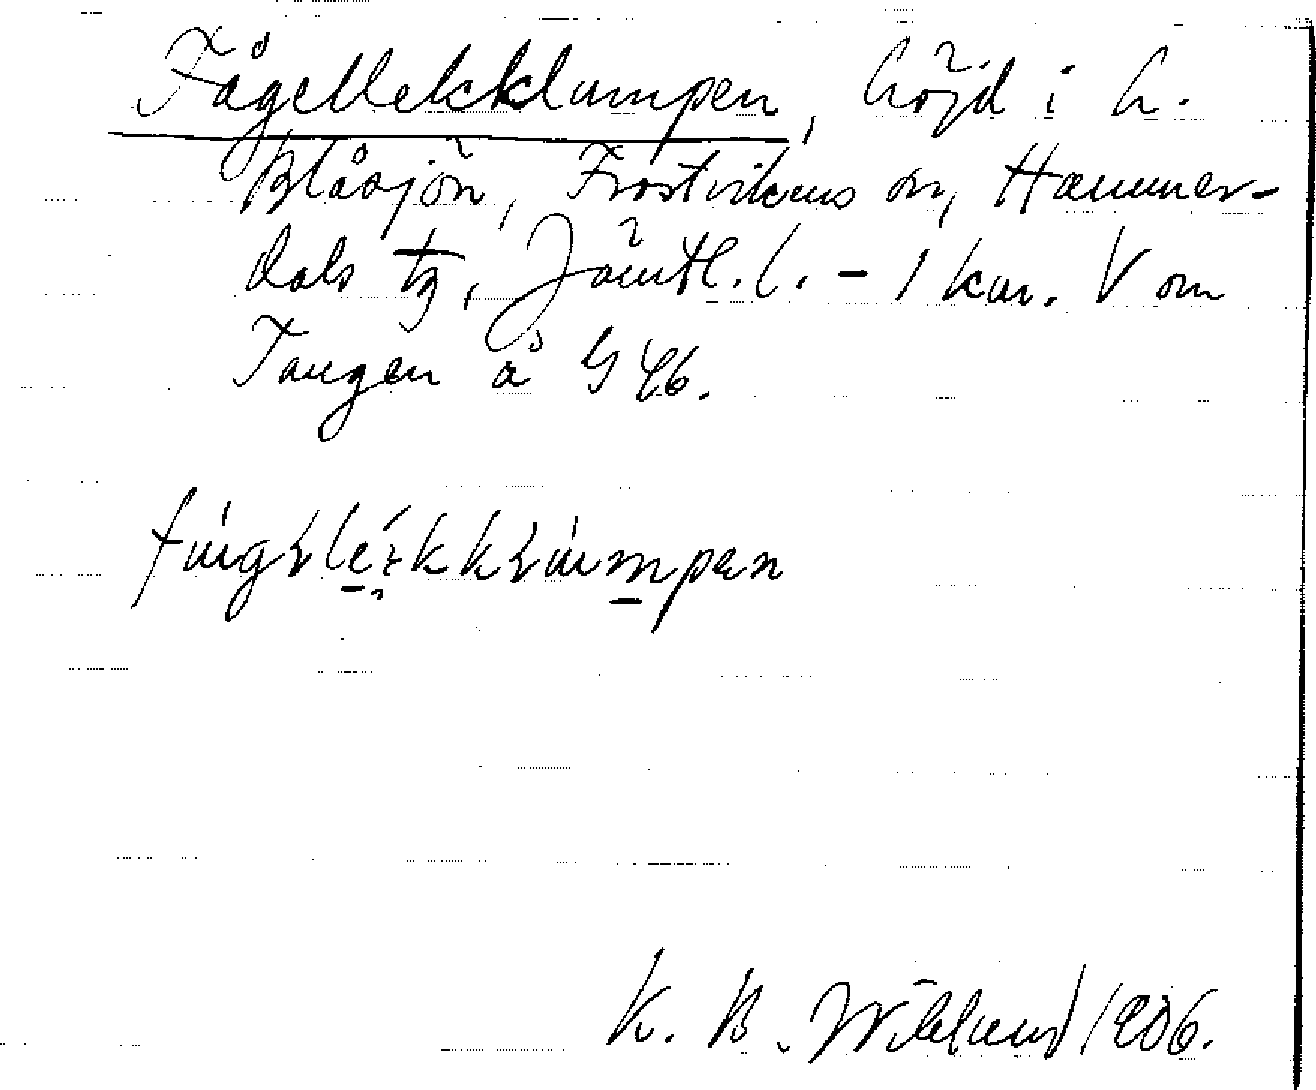 Fågellekklumpen, höjd i L.
Blåsjön, Frostvikens sn, Hammer-
dals tg, Jämtl. l. - 1 km. V om
Tangen å G 46.
K. B. Wiklund 1906.